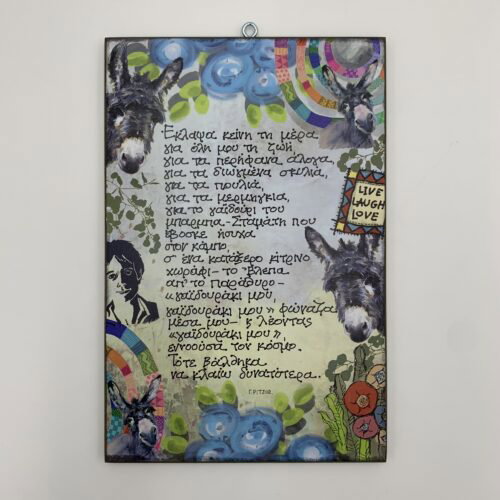 Έκλαψα κείνη τη μέρα
για όλη μου τη ζωή,
για τα περήφανα άλογα,
για τα διωγμένα σκυλιά,
για τα πουλιά,
για τα μερμήγκια,
για το γαϊδούρι του
μπαρμπα-Σταμάτη που
έβοσκε ήσυχα
στον κάμπο
σ' ένα κατάξερο κίτρινο
χωράφι - το 'βλεπα
απ' το παράθυρο -
«γαϊδουράκι μου,
γαϊδουράκι μου» φώναζα
μέσα μου - κ λέοντας
«γαϊδουράκι μου»,
εννοούσα τον κόσμο.
Τότε βάλθηκα
να κλαίω δυνατότερα..
Γ. ΡΙΤΣΟΣ
LIVE
LAUGH
LOVE